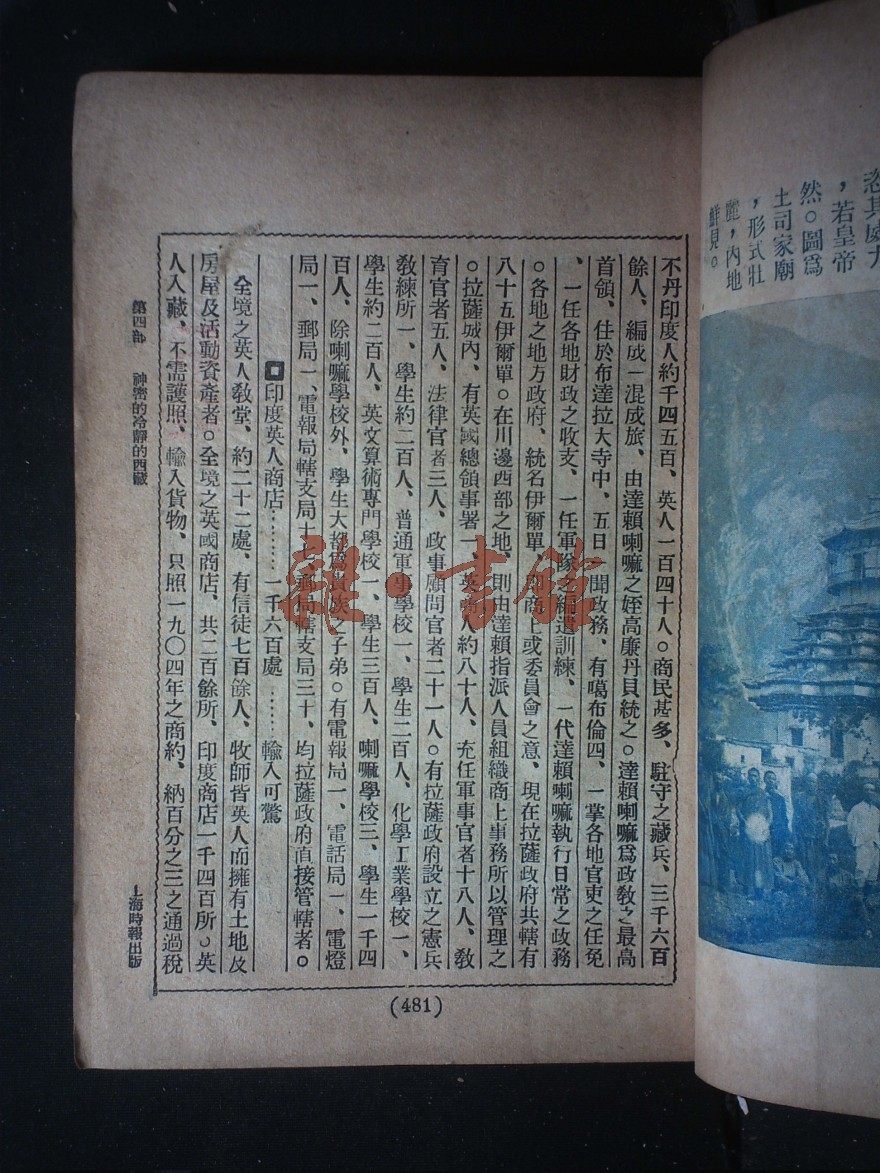 恣其威力
，若皇帝
然。圖爲
土司家廟
，形式壯
麗，內地
鮮見。
不丹印度人約千四五百、英人一百四十人。商民甚多、駐守之藏兵、三千六百
餘人、編成一混成旅、由達賴喇嘛之姪高廉丹貝統之。達賴喇嘛爲政敎之最高
首領、住於布達拉大寺中、五日一聞政務、有噶布倫四、一掌各地官吏之任免
、一任各地財政之收支、一任軍隊之編遣訓練、一代達賴喇嘛執行日常之政務
。各地之地方政府、統名伊爾單、卽商上或委員會之意、現在拉薩政府共轄有
八十五伊爾單。在川邊西部之地、則由達賴指派人員組織商上事務所以管理之
。拉薩城內、有英國總領事署一、英商人約八十人、充任軍事官者十八人、敎
育官者五人、法律官者三人、政事顧問官者二十一人。有拉薩政府設立之憲兵
敎練所一、學生約二百人、普通軍事學校一、學生二百人、化學工業學校一、
學生約二百人、英文算術專門學校一、學生三百人、喇嘛學校三、學生一千四
百人、除喇嘛學校外、學生大都爲貴族之子弟。有電報局一、電話局一、電燈
局一、郵局一、電報局轄支局十七、郵局轄支局三十、均拉薩政府直接管轄者。
印度英人商店………一千六百處……輸入可驚
全境之英人敎堂、約二十二處、有信徒七百餘人、牧師皆英人而擁有土地及
房屋及活動資產者。全境之英國商店、共二百餘所、印度商店一千四百所。英
人入藏、不需護照、輸入貨物、只照一九〇四年之商約、納百分之三之通過稅
第四部 神密的冷靜的西藏
上海時報出版
(481)
雜·書館